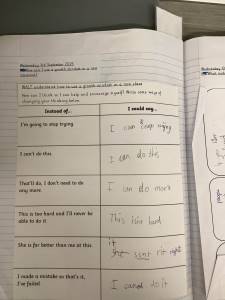 Wednesday 3rd September 2025
How can I use a growth mindset in a new
WALT understand how to use a growth mindset in a new class
How can I think so I can help and encourage myself? Write some ways of
changing your thinking below.
Instead of... I could say...
I'm going to stop trying. I can keep trying
I can't do this. I can do this
That'll do, I don't need to do any more. I can do more
This is too hard and I'll never be able to do it. This is hard
She is far better than me at this.
I made a mistake so that's it, I've failed. I can do it
Wednesday